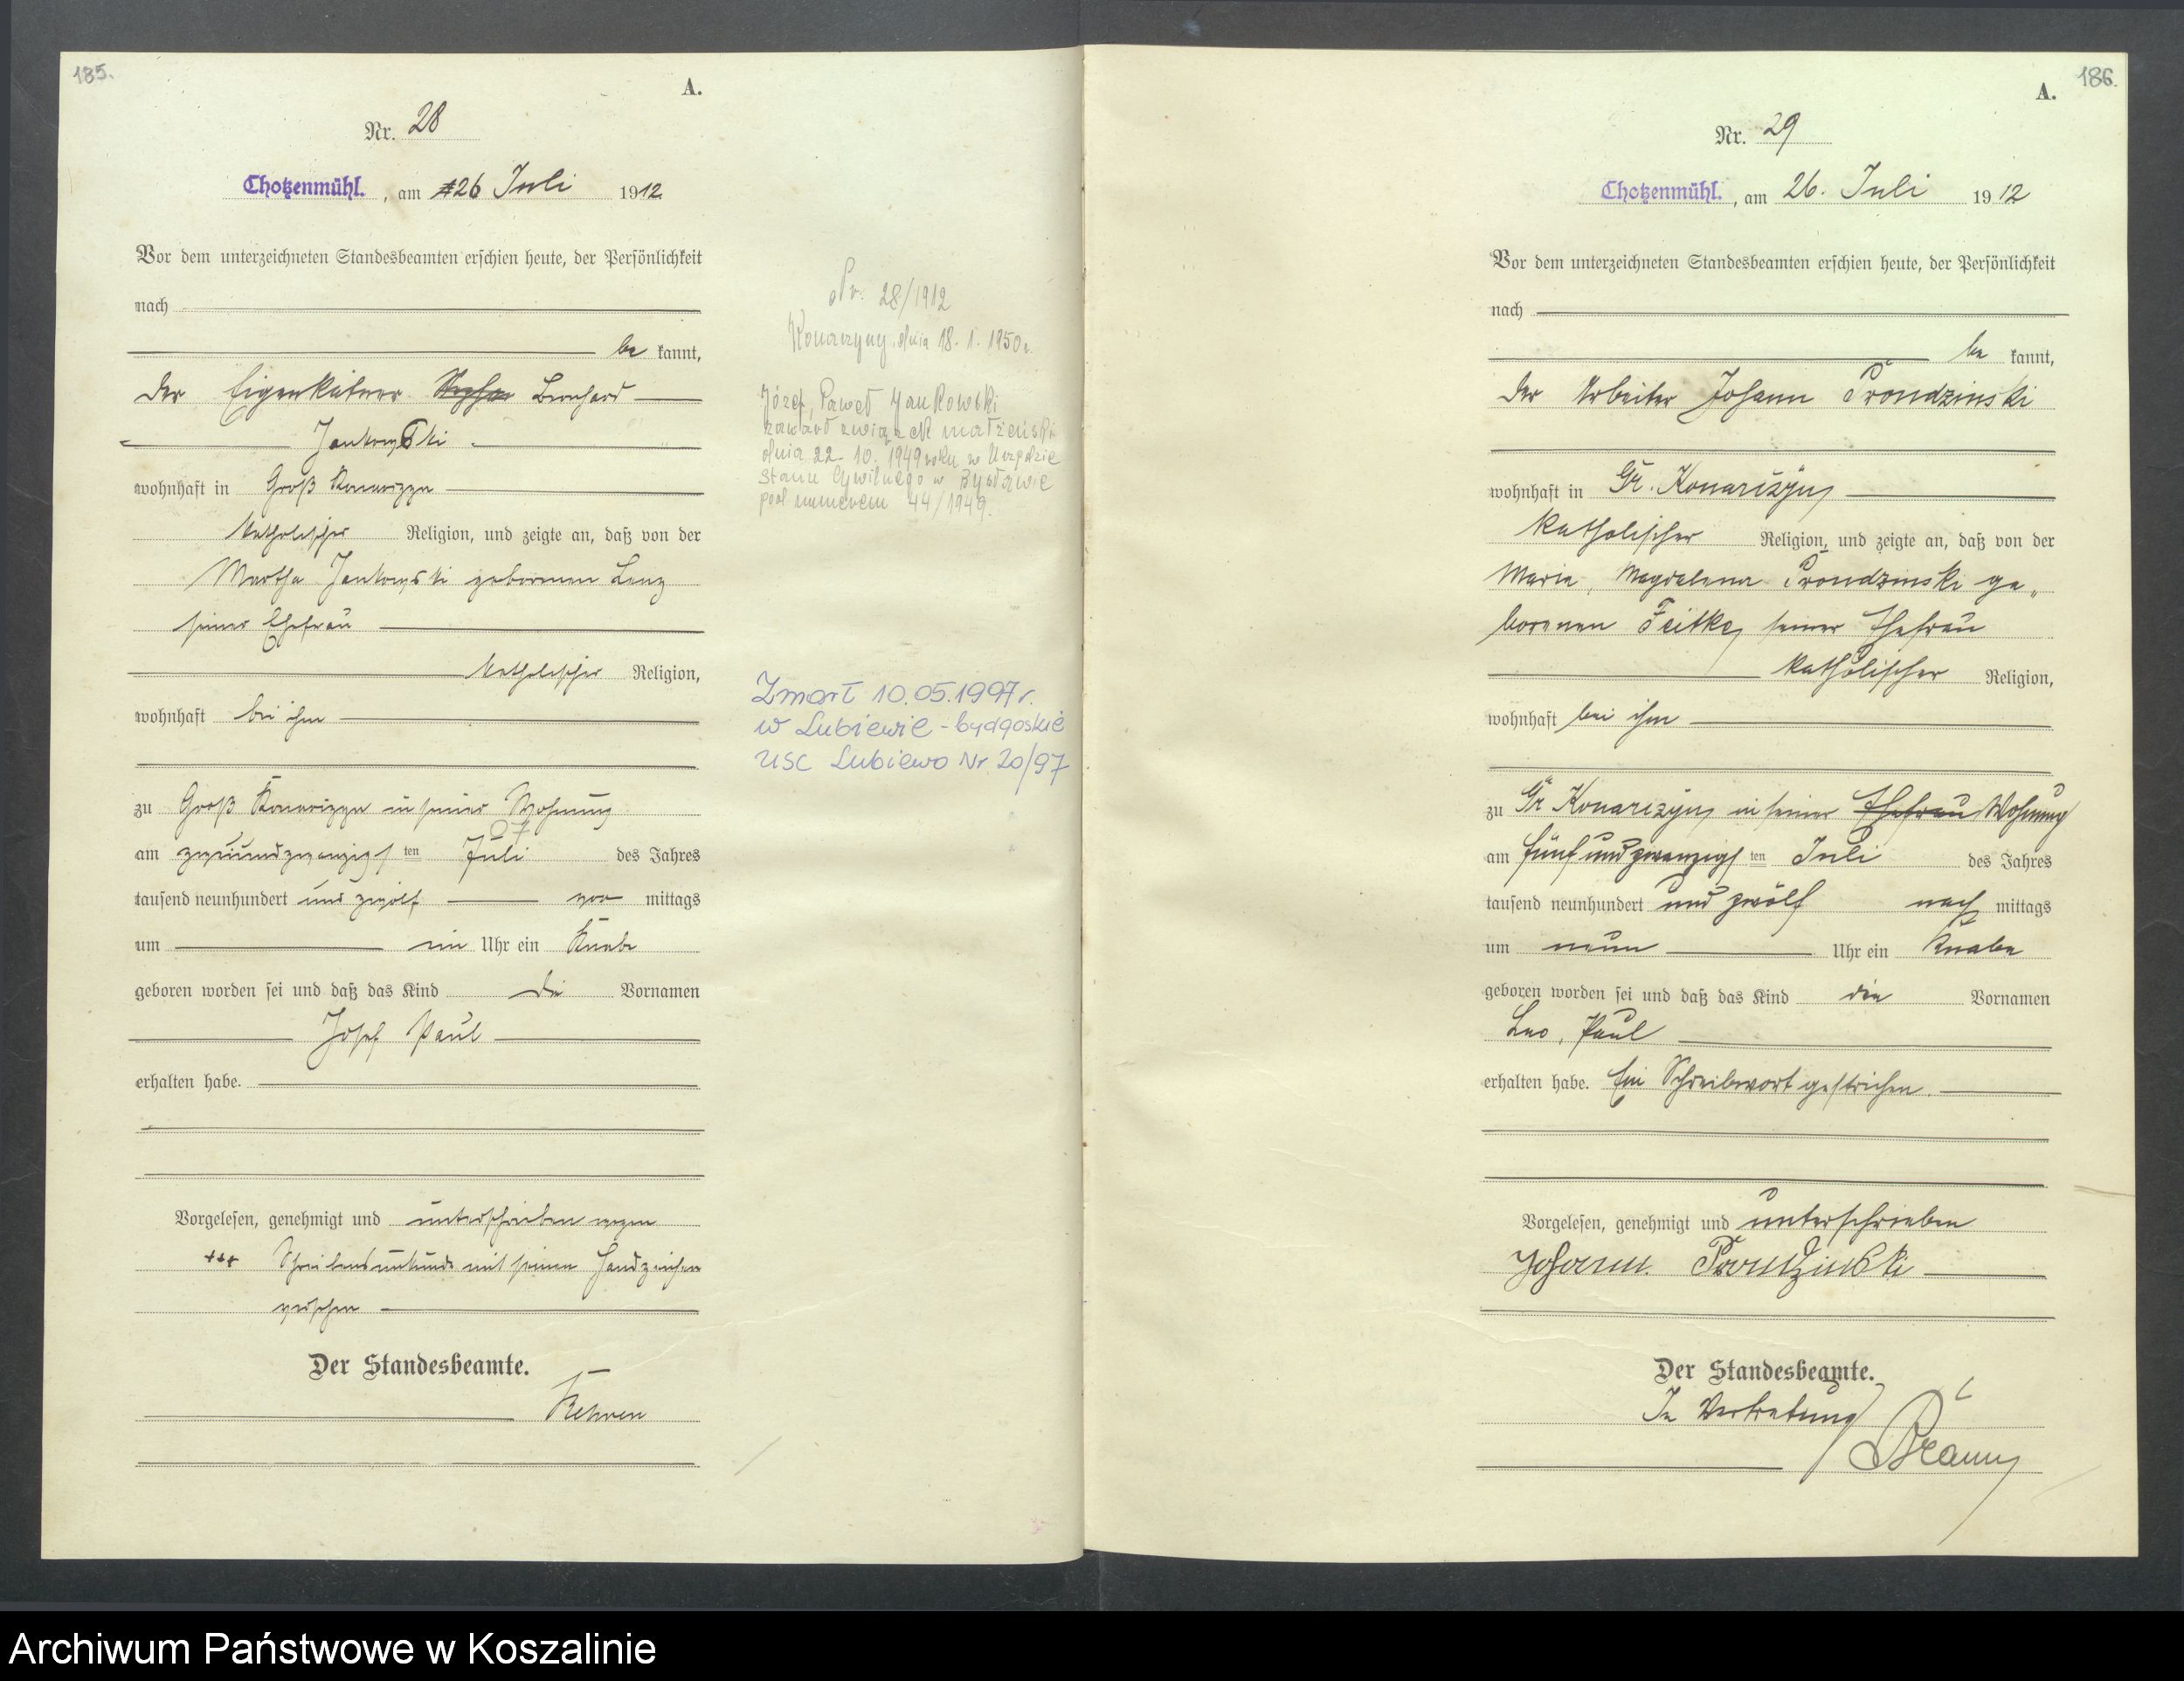 185.
A.
Nr. 28
Chotzenmühl. , am 26 Juli 1912
Vor dem unterzeichneten Standesbeamten erschien heute, der Persönlichkeit
nach
be kannt,
der Eigenkätner Bernhard
Jankowski
wohnhaft in Groß Konarizyn
katholischer Religion, und zeigte an, daß von der
Martha Jankowski geborenen Lenz
seiner Ehefrau
katholischer Religion,
wohnhaft bei ihm
zu Groß Konarizyn in seiner Wohnung
07
am zweiundzwanzigsten Juli des Jahres
tausend neunhundert und zwölf vor mittags
um ein Uhr ein Knabe
geboren worden sei und daß das Kind die Vornamen
Josef Paul
erhalten habe.
Vorgelesen, genehmigt und unterschrieben wegen
+++ Schreibensunkunde mit seinem Handzeichen
versehen
Der Standesbeamte.
Nr. 28/1912
Konarzyny, dnia 18. 1. 1950 r.
Józef, Paweł Jankowski
zawarł związek małżeński
dnia 22. 10. 1949 roku w Urzędzie
Stanu Cywilnego w Bysławie
pod numerem 44/1949.
Zmarł 10.05.1997 r.
w Lubiewie - bydgoskie
USC Lubiewo Nr 20/97
186.
A.
Nr. 29
Chotzenmühl. , am 26. Juli 1912
Vor dem unterzeichneten Standesbeamten erschien heute, der Persönlichkeit
nach
be kannt,
der Arbeiter Johann Prondzinski
wohnhaft in Gr. Konarizyn
katholischer Religion, und zeigte an, daß von der
Maria, Magdalena Prondzinski ge„
borenen Feitke, seiner Ehefrau
katholischer Religion,
wohnhaft bei ihm
zu Gr Konarizyn in seiner Ehefrau Wohnung
am fünfundzwanzigsten Juli des Jahres
tausend neunhundert und zwölf nach mittags
um neun Uhr ein Knabe
geboren worden sei und daß das Kind die Vornamen
Leo, Paul
erhalten habe. Ein Schreibwort gestrichen.
Vorgelesen, genehmigt und unterschrieben
Johann Prondzinski
Der Standesbeamte.
In Vertretung
Archiwum Państwowe w Koszalinie